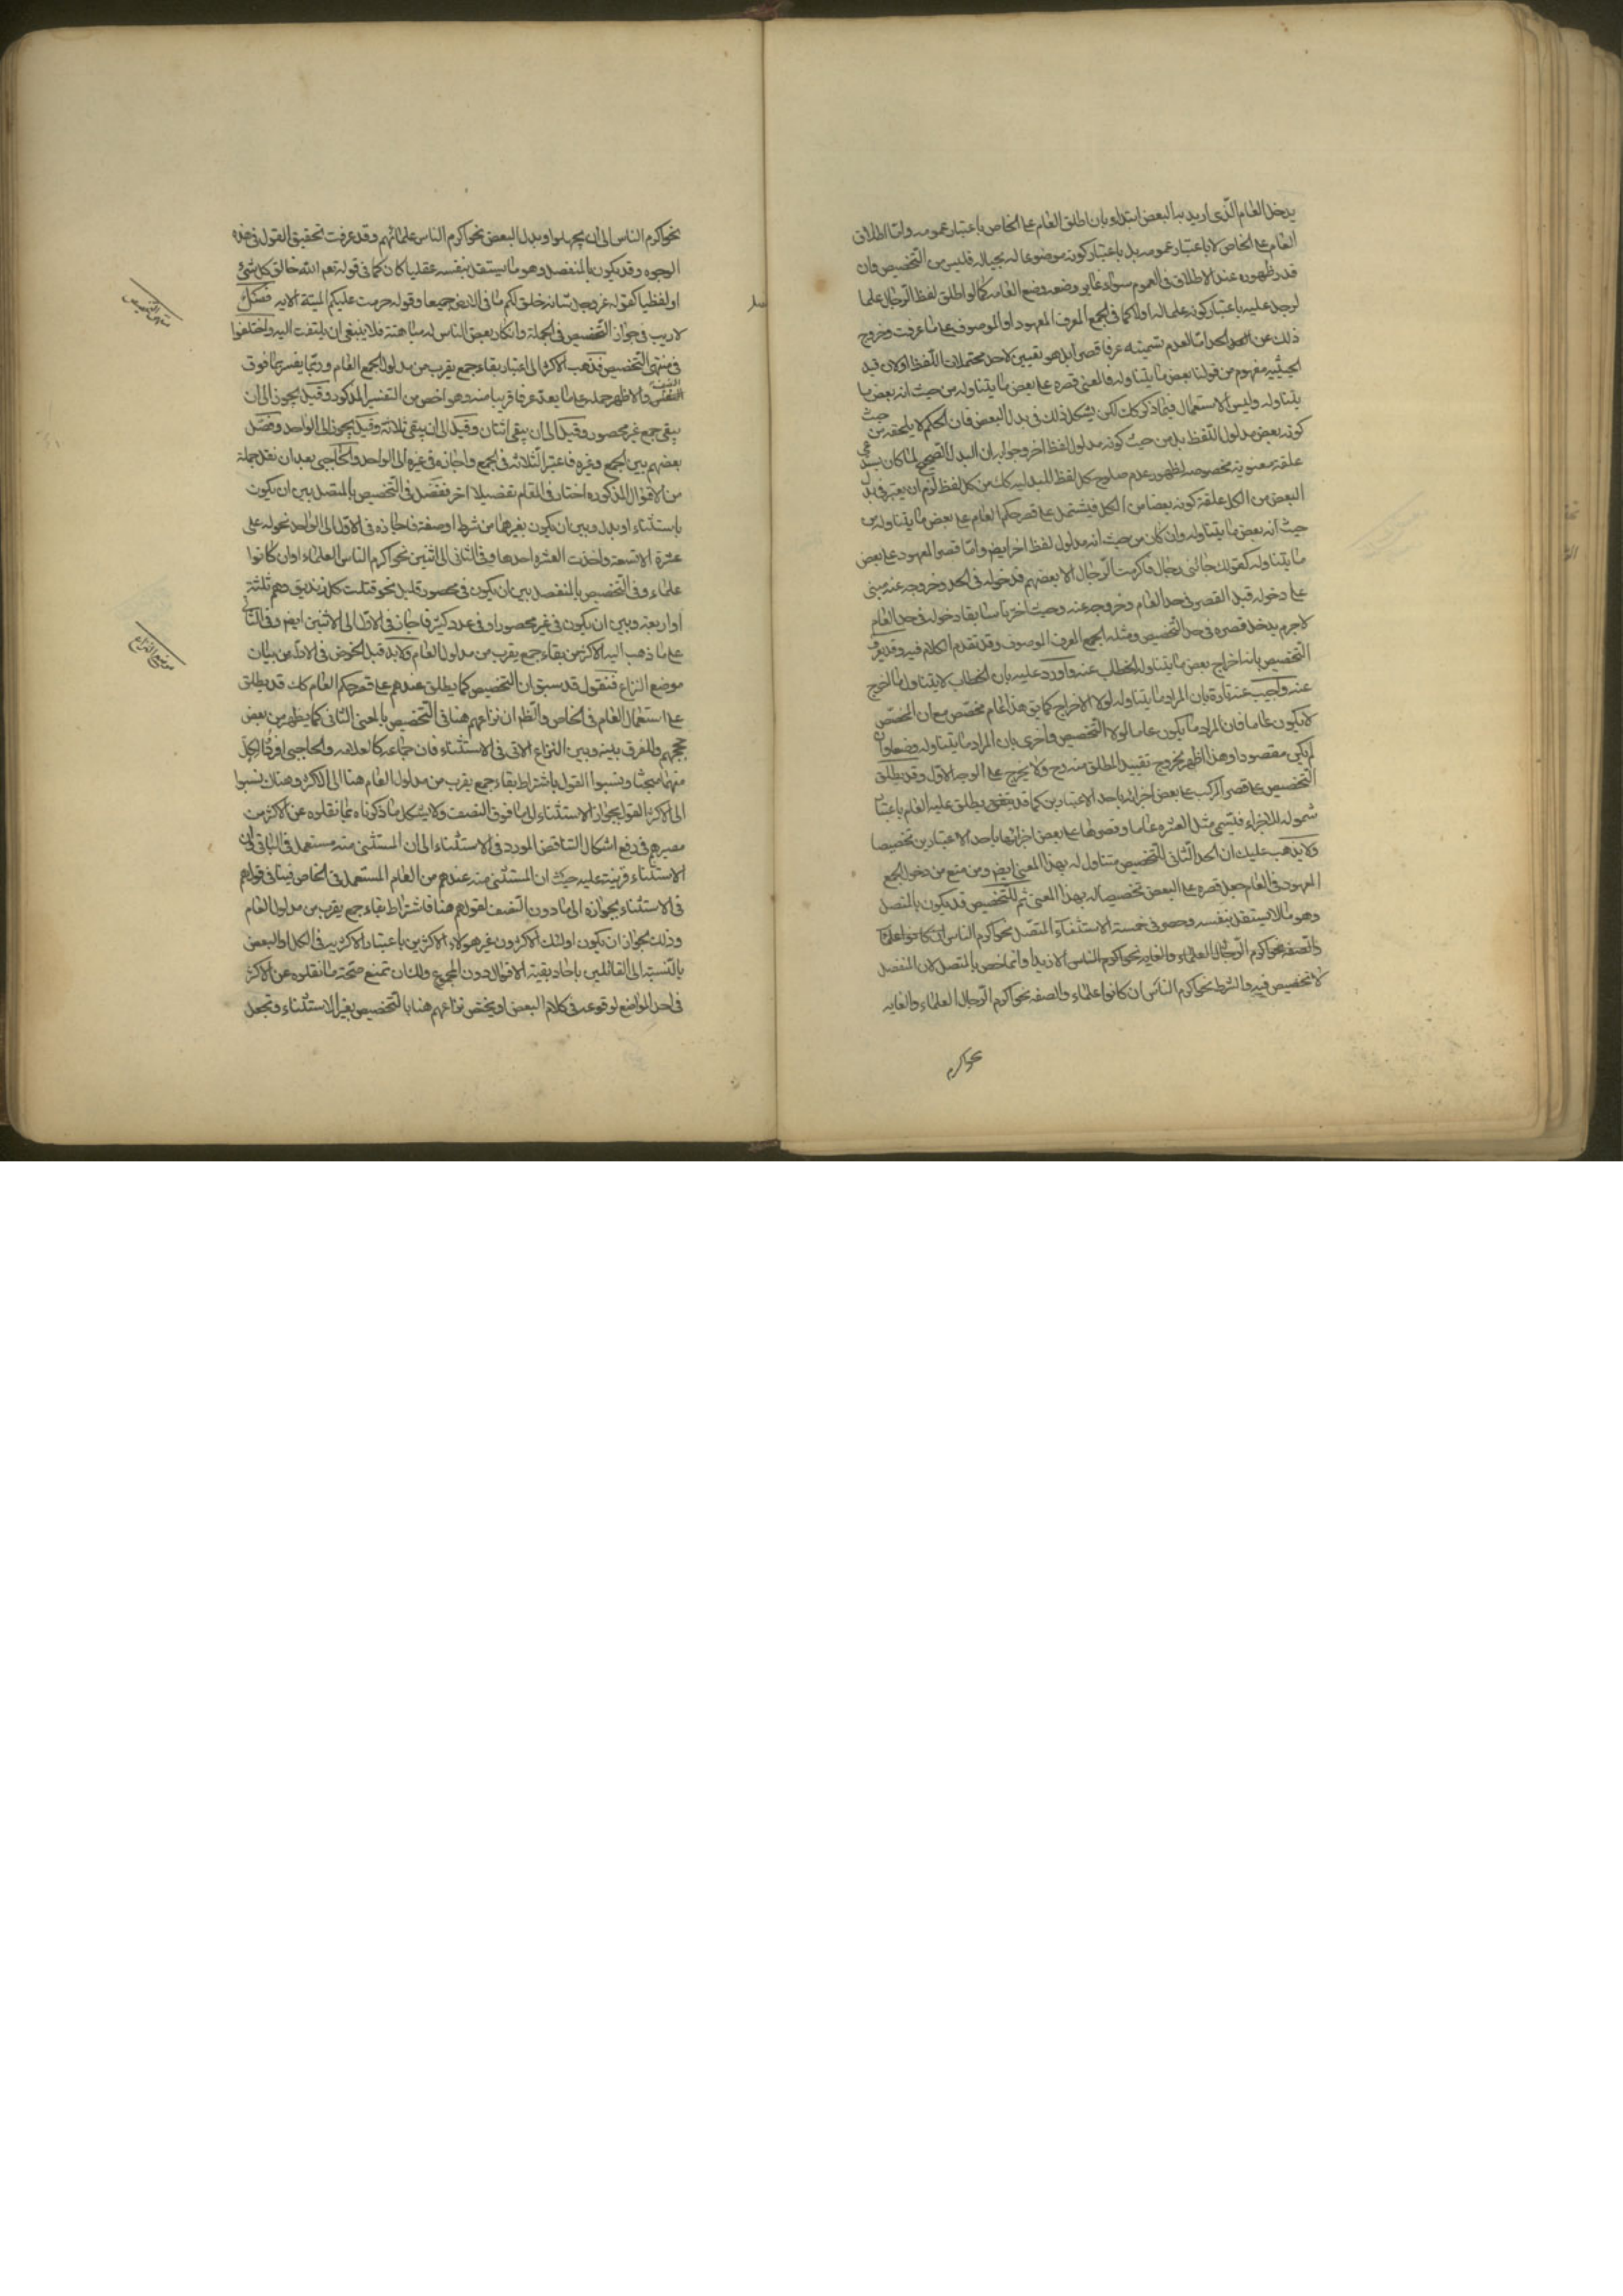 يدخل العام الذى اريد به البعض ابتداء بان اطلق العام على الخاص باعتبار عمومه واما اطلاق
العام على الخاص لا باعتبار عمومه بل باعتبار كونه موضوعا له بحياله فليس من التخصيص وان
قدر ظهوره عند الاطلاق فى العموم سواء غاير وضعه وضع العام كما لو اطلق لفظ الرجال علما
لرجل عليه باعتبار كونه علما له اولا كما فى الجمع المعرف المعهود او الموصوف على ما عرفت وخروج
ذلك عن الحد اما لعدم تسميته عرفا قصرا بل هو تعيين لاحد محتملات اللفظ او لان قيد
الحيثية مفهوم من قولنا بعض ما يتناوله فالمعنى قصره على بعض ما يتناوله من حيث انه بعض ما
يتناوله وليس الاستعمال فيما ذكر كك لكن يشكل ذلك فى بدل البعض فان الحكم لا يلحقه من حيث
كونه بعض مدلول اللفظ بل من حيث كونه مدلول لفظ اخر وجوابه ان البدل الصحيح لما كان يستدعى
علقة معنوية مخصوصة لظهور عدم صلوح كل لفظ للبدلية كك من كل لفظ لزم ان يعتبر فى بدل
البعض من الكل علقة كونه بعضا من الكل فيشتمل على قصر حكم العام على بعض ما يتناوله من
حيث انه بعض ما يتناوله وان كان من حيث انه مدلول لفظ اخر ايض واما قصر المعهود على بعض
ما يتناوله كقولك جائنى رجال فاكرمت الرجال الا بعضهم فدخوله فى الحد وخروجه عنه مبنى
على دخوله قبل القصر فى حد العام وخروجه عنه وحيث اخترنا سابقا دخوله فى حد العام
لا جرم يدخل قصره فى حد التخصيص ومثله الجمع المعرف الموصوف وقد تقدم الكلام فيه وقد يعرف
التخصيص بانه اخراج بعض ما يتناوله الخطاب عنه واورد عليه بان الخطاب لا يتناول ما اخرج
عنه واجيب عنه تارة بان المراد ما يتناوله لولا الاخراج كما يق هذا العام مخصص مع ان المخصص
لا يكون عاما فان المراد ما يكون عاما لولا التخصيص واخرى بان المراد ما يتناوله وضعا وان
لم يكن مقصودا وهذا اظهر بخروج تقييد المطلق منه ح ولا يخرج على الوجه الاول وقد يطلق
التخصيص على قصر المركب على بعض اجزائه باحد الاعتبارين كما قد يتفق يطلق عليه العام باعتبار
شموله للاجزاء فيسمى مثل العشرة عاما وقصرها على بعض اجزائها باحد الاعتبارين تخصيصا
ولا يذهب عليك ان الحد الثانى للتخصيص متناول له بهذا المعنى ايض ومن منع من دخول الجمع
المعهود فى العام جعل قصره على البعض تخصيصا له بهذا المعنى ثم التخصيص قد يكون بالمتصل
وهو ما لا يستقل بنفسه وحصر فى خمسة الاستثناء المتصل نحو اكرم الناس ان كانوا علماء
والصفة نحو اكرم الرجال العلماء والغاية نحو اكرم الناس الا زيدا وانما خص بالمتصل لان المنفصل
لا تخصيص فيه والشرط نحو اكرم الناس ان كانوا علماء والصفه نحو اكرم الرجال العلماء والغايه
نحو اكرم
نحو اكرم الناس الى ان يجهلوا وبدل البعض نحو اكرم الناس علمائهم وقد عرفت تحقيق القول فى هذه
الوجوه وقد يكون بالمنفصل وهو ما يستقل بنفسه عقليا كان كما فى قوله تعم الله خالق كل شئ
او لفظيا كقوله عز وجل شانه خلق لكم ما فى الارض جميعا وقوله حرمت عليكم الميتة الايه فصل
منتهى التخصيص
لا ريب فى جواز التخصيص فى الجملة وانكار بعض الناس له مباهتة فلا ينبغى ان يلتفت اليه واختلفوا
فى منتهى التخصيص فذهب الاكثر الى اعتبار بقاء جمع يقرب من مدلول الجمع العام وربما يفسر بما فوق
النصف والاظهر حمله على ما يعد عرفا قريبا منه وهو اخص من التفسير المذكور وقيل يجوز الى ان
يبقى جمع غير محصور وقيل الى ان يبقى اثنان وقيل الى ان يبقى ثلاثة وقيل يجوز الى الواحد وفصل
بعضهم بين الجمع وغيره فاعتبر الثلاثه فى الجمع واجازه فى غيره الى الواحد والحاجبى بعد ان نقل جملة
من الاقوال المذكوره اختار فى المقام تفصيلا اخر ففصل فى التخصيص بالمتصل بين ان يكون
باستثناء او بدل وبين ان يكون بغيرهما من شرط او صفة فاجازه فى الاول الى الواحد نحو له على
عشرة الا تسعة واخذت العشره احدها وفى الثانى الى اثنين نحو اكرم الناس العلماء او ان كانوا
علماء وفى التخصيص بالمنفصل بين ان يكون فى محصور قليل نحو قتلت كل زنديق وهم ثلثة
او اربعة وبين ان يكون فى غير محصور او فى عدد كثير فاجاز فى الاول الى الاثنين ايض وفى الثانى
على ما ذهب اليه الاكثر من بقاء جمع يقرب من مدلول العام ولا بد قبل الخوض فى الادله من بيان
منتهى النزاع
موضع النزاع فنقول قد سبق ان التخصيص كما يطلق عندهم على قصر حكم العام كك قد يطلق
على استعمال العام فى الخاص والظم ان نزاعهم هنا فى التخصيص بالمعنى الثانى كما يظهر من بعض
حججهم وللفرق بينه وبين النزاع الاتى فى الاستثناء فان جماعه كالعلامه والحاجبى افردوا لكل
منهما مبحثا ونسبوا القول باشتراط بقاء جمع يقرب من مدلول العام هنا الى الاكثر وهناك نسبوا
الى الاكثر القول بجواز الاستثناء الى ما فوق النصف ولا يشكل ما ذكرناه بما نقلوه عن الاكثر من
مصيرهم فى دفع اشكال التناقض المورد فى الاستثناء الى ان المستثنى منه مستعمل فى الباقى وان
الاستثناء قرينة عليه حيث ان المستثنى منه عندهم من العام المستعمل فى الخاص فينافى قولهم
فى الاستثناء بجوازه الى ما دون النصف لقولهم هنا فاشتراط بقاء جمع يقرب من مدلول العام
وذلك لجواز ان يكون اولئك الاكثرون غير هولاء الاكثرين باعتبار الاكثرية فى الكل او البعض
بالنسبة الى القائلين باحاد بقية الاقوال دون المجموع ولنا ان نمنع صحة ما نقلوه عن الاكثر
فى احد المواضع لوقوعه فى كلام البعض او يختص نزاعهم هنا بالتخصيص بغير الاستثناء ونجعل